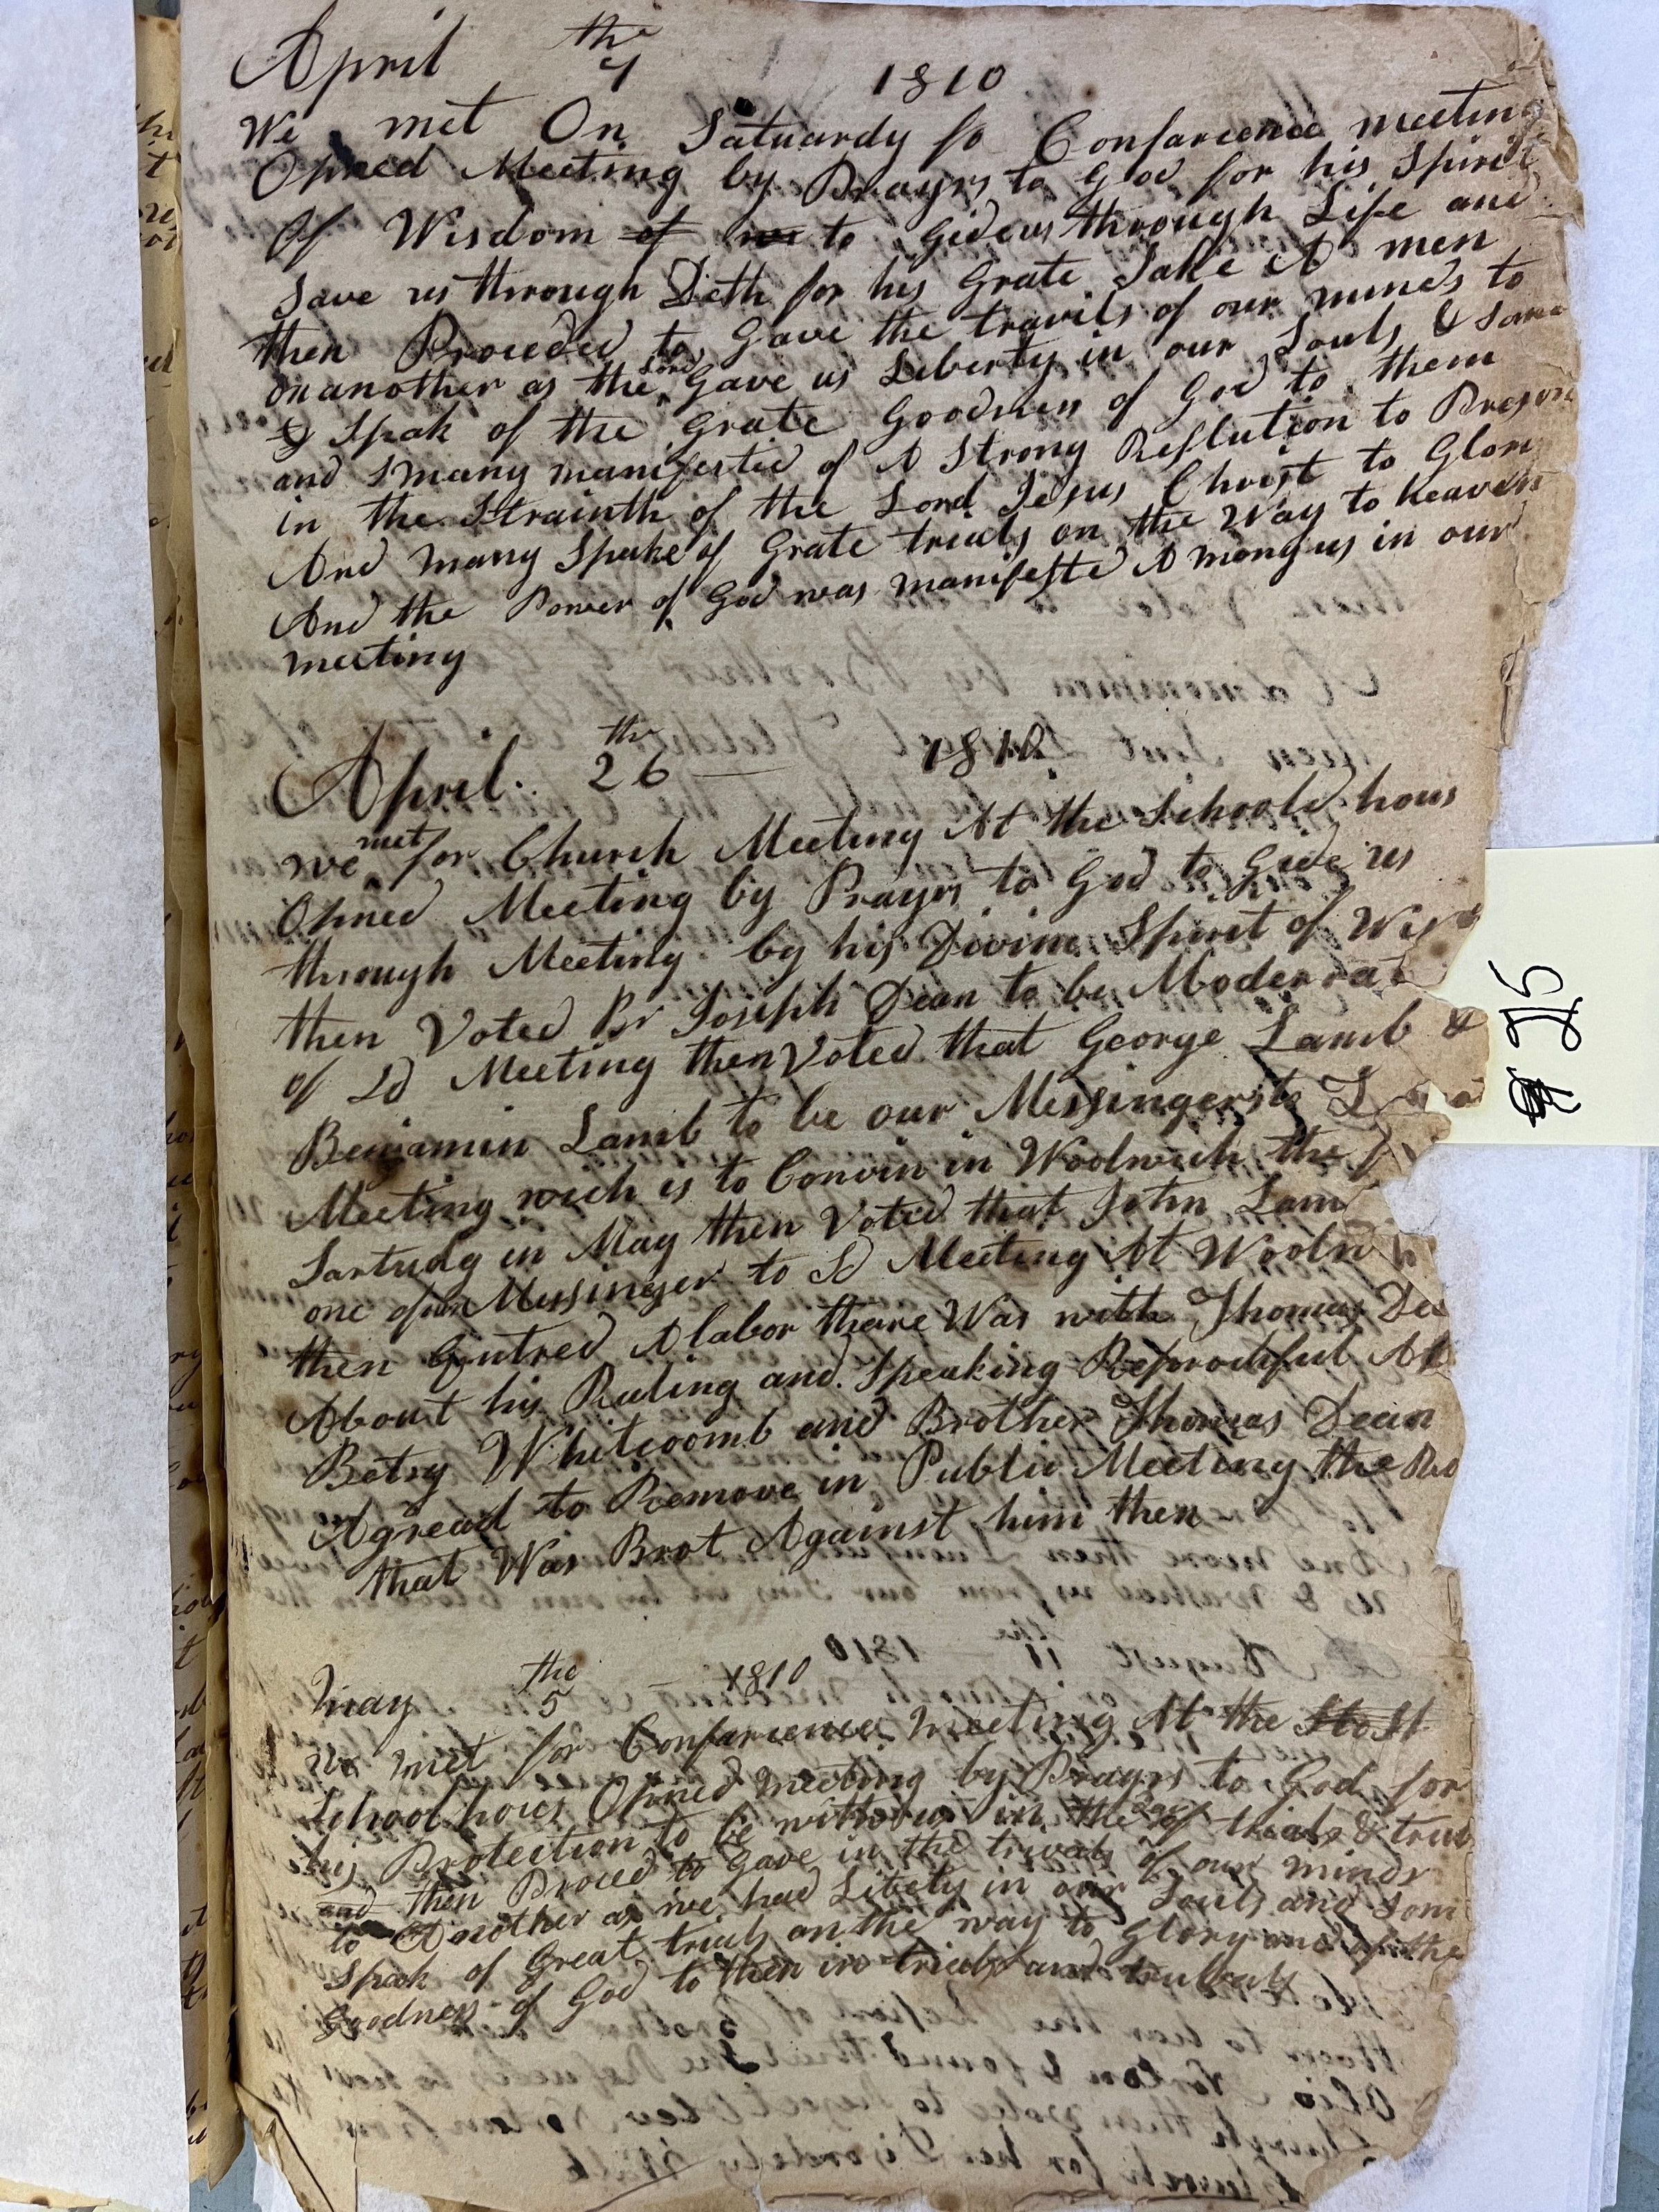 April the 7 1810
We met On Satuardy fo Confarience meeting
Opned Meeting by Prayrs to God for his Spirit
Of Wisdom of to Gide us through Life and
Save us through Deth for his Grate Sake A men
then Proceded to Gave the travils of our minds to
on another as the Lord Gave us Liberty in our Souls & Some
Spak of the Grate Goodness of God to them
and Smany manifestid of A Strong Reslution to
in the Strainth of the Lord Jesus Christ to Glory
And many Spake of Grate trials on the Way to heaven
And the Power of God was manifestd A mong us in our
meeting
April 26 th 1810
we met for Church Meeting At the Schoole hous
Opned Meeting by Prayrs to God to Gide us
through Meeting by his Divine Spirit of
then Voted Br Joseph Dean to be
of Sd Meeting then Voted that George Lamb &
Benjamin Lamb to be our Messingers to
Meeting wich is to Convin in Woolwich the
Sartudy in May then Voted that John
one of our Messinger to Sd Meeting At
then Entred A labor thare Was with Thomas
About his Ruling and Speaking Reprochful
Betsy Whitcoomb and Brother Thomas Dean
Agread to Remove in Public Meeting the
that Was Brot Against him then
May the 5 1810
we met for Confarience meeting At the
School hous Opned meeting by Prayrs to God for
his Protection to be with us in the of trials &
and then Proced to Gave in the trivals of our minds
to Another as we had Libety in our Souls and Som
Speak of Great trials on the way to Glory and of the
Goodness of God to them in trials and
# 25